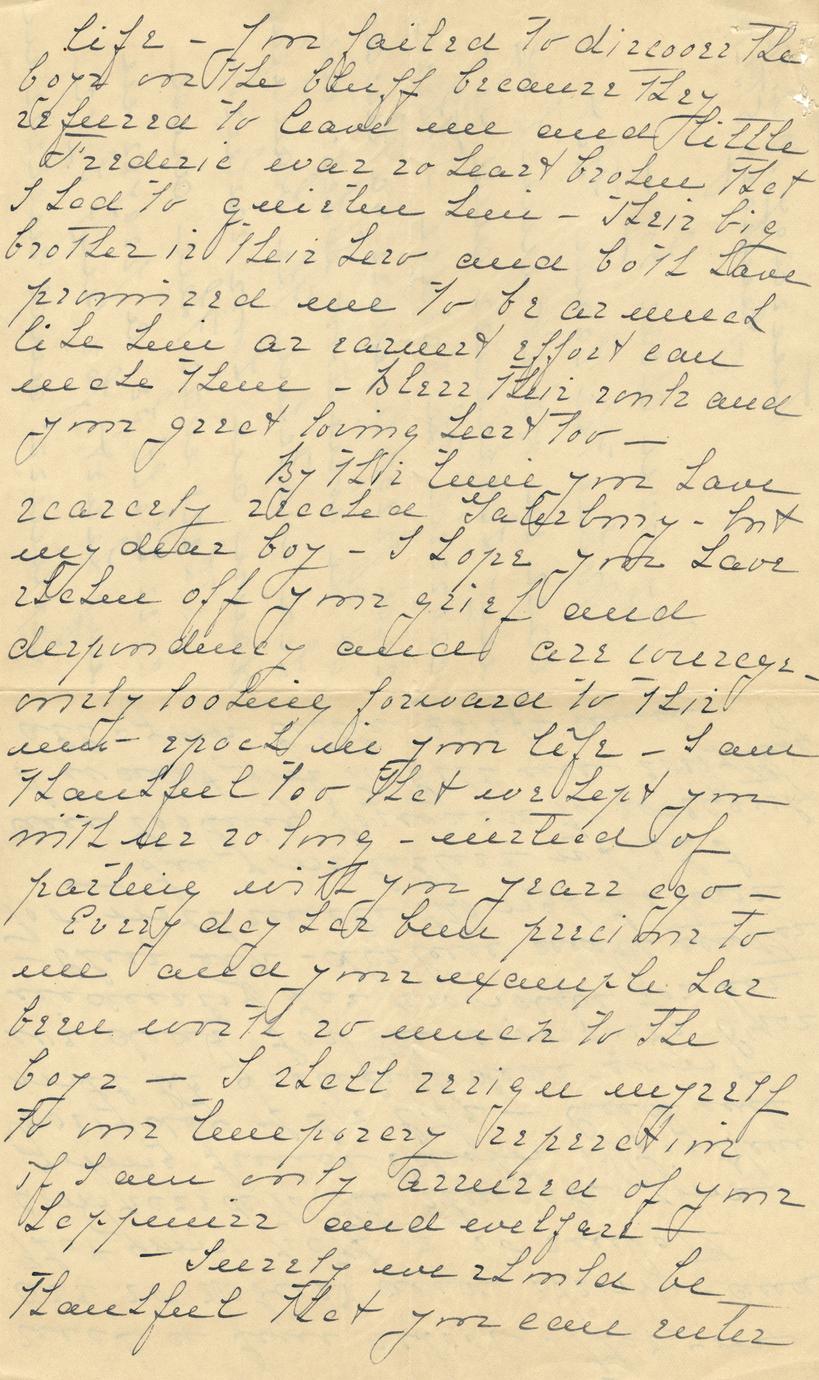 life - You failed to discover the
boys on the bluff because they
refused to leave me and little
Frederic was so heart broken that
I had to quieten him - Their big
brother is their hero and both have
promised me to be as much
like him as earnest effort can
make them - Bless their souls and
your great loving heart too -
By this time you have
scarcely reached Salisbury - but
my dear boy - I hope you have
shaken off your grief and
despondency and are courage-
ously looking forward to this
new epoch in your life - I am
thankful too that we kept you
with us so long - instead of
parting with you years ago -
Every day has been precious to
me and your example has
been worth so much to the
boys - I shall resign myself
to our temporary separation
if I am only assured of your
happiness and welfare -
- Surely we should be
thankful that you can enter